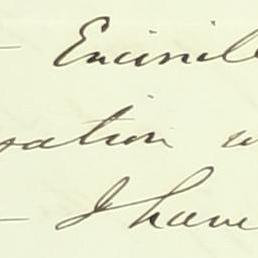 - Encinill
ation w
- I have